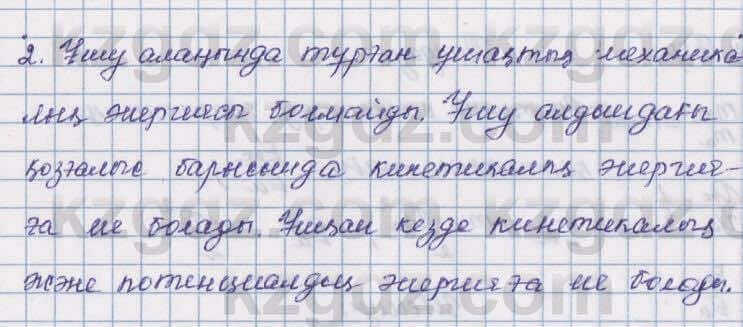 2. Ұшу алаңында тұрған ұшақтың механика
лық энергиясы болмайды. Ұшу алдындағы
қозғалыс барысында кинетикалық энергия-
ға ие болады. Ұшқан кезде кинетикалық
және потенциалдық энергияға ие болады.